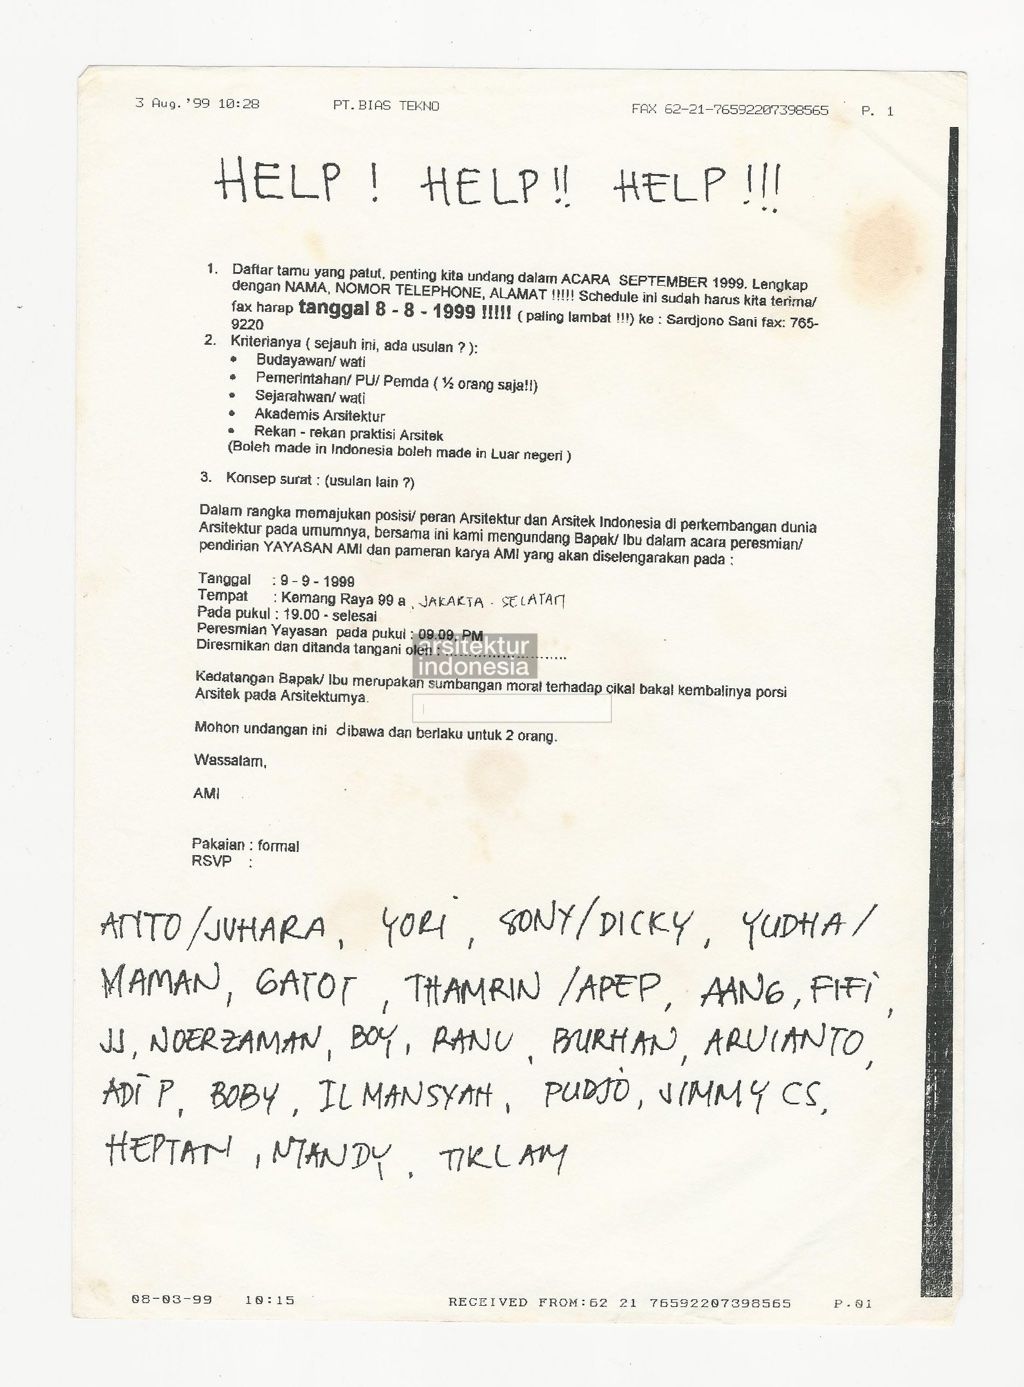 3 Aug.'99 10:28 PT.BIAS TEKNO FAX 62-21-76592207398565 P. 1
HELP ! HELP !! HELP !!!
1. Daftar tamu yang patut, penting kita undang dalam ACARA SEPTEMBER 1999. Lengkap
dengan NAMA, NOMOR TELEPHONE, ALAMAT !!!!! Schedule ini sudah harus kita terima/
fax harap tanggal 8 - 8 - 1999 !!!!! ( paling lambat !!!) ke : Sardjono Sani fax: 765-
9220
2. Kriterianya ( sejauh ini, ada usulan ? ):
• Budayawan/ wati
• Pemerintahan/ PU/ Pemda ( ½ orang saja!!)
• Sejarahwan/ wati
• Akademis Arsitektur
• Rekan - rekan praktisi Arsitek
(Boleh made in Indonesia boleh made in Luar negeri )
3. Konsep surat : (usulan lain ?)
Dalam rangka memajukan posisi/ peran Arsitektur dan Arsitek Indonesia di perkembangan dunia
Arsitektur pada umumnya, bersama ini kami mengundang Bapak/ Ibu dalam acara peresmian/
pendirian YAYASAN AMI dan pameran karya AMI yang akan diselengarakan pada :
Tanggal : 9 - 9 - 1999
Tempat : Kemang Raya 99 a , JAKARTA - SELATAN
Pada pukul : 19.00 - selesai
Peresmian Yayasan pada pukul : 09.09. PM
Diresmikan dan ditanda tangani oleh : ......................
arsitektur
indonesia
Kedatangan Bapak/ Ibu merupakan sumbangan moral terhadap cikal bakal kembalinya porsi
Arsitek pada Arsitekturnya.
Mohon undangan ini dibawa dan berlaku untuk 2 orang.
Wassalam,
AMI
Pakaian : formal
RSVP :
ANTO/JUHARA, YORI, SONY/DICKY, YUDHA/
MAMAN, GATOT, THAMRIN /APEP, AANG, FIFI,
JJ, NOERZAMAN, BOY, RANU, BURHAN, ARVIANTO,
ADI P, BOBY, ILMANSYAH, PUDJO, JIMMY CS,
HEPTAN, NANDY, TIKLAM
08-03-99 10:15 RECEIVED FROM:62 21 76592207398565 P.01